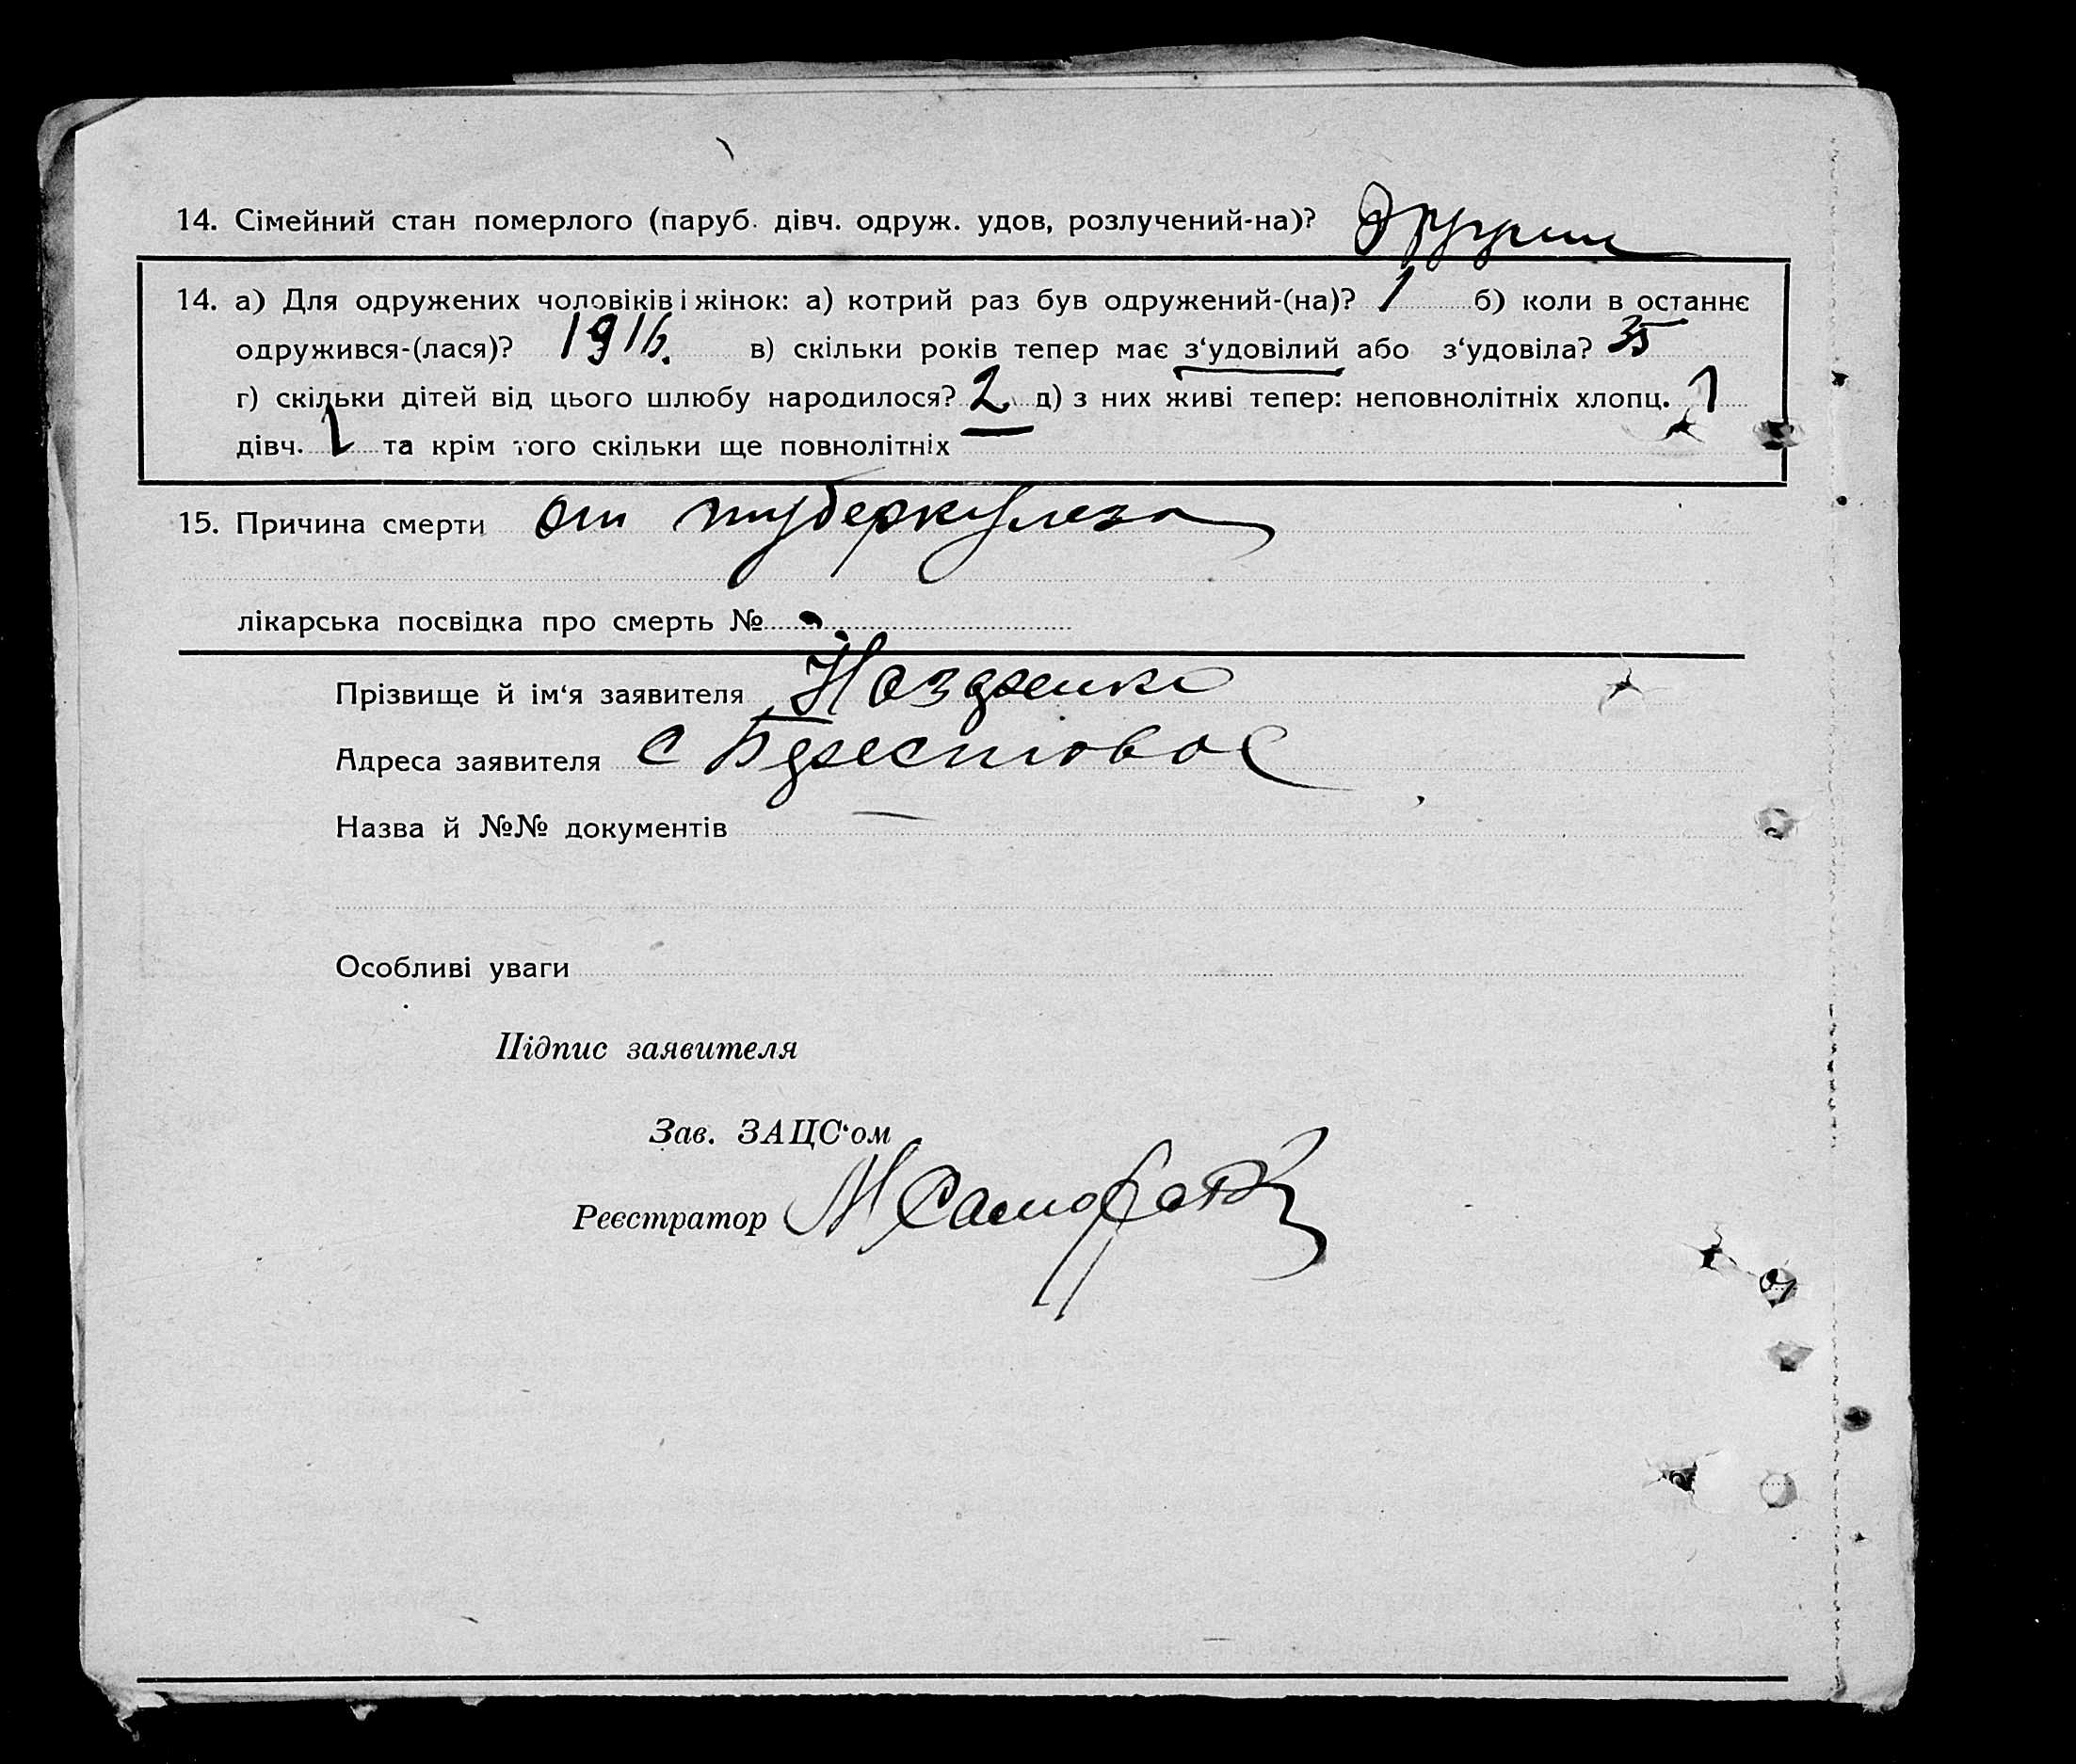 14. Сімейний стан померлого (паруб. дівч. одруж. удов, розлучений-на)?
14. а) Для одружених чоловіків і жінок: а) котрий раз був одружений-(на)? 1 б) коли в останнє
одружився-(лася)? 1916. в) скільки років тепер має з‘удовілий або з‘удовіла? 35
г) скільки дітей від цього шлюбу народилося? 2 д) з них живі тепер: неповнолітніх хлопц. 1
дівч. 1 та крім того скільки ще повнолітніх —
15. Причина смерти от туберкулеза
лікарська посвідка про смерть №
Прізвище й ім‘я заявителя
Адреса заявителя с
Назва й №№ документів —
Особливі уваги
Підпис заявителя
Зав. ЗАЦС‘ом
Реєстратор